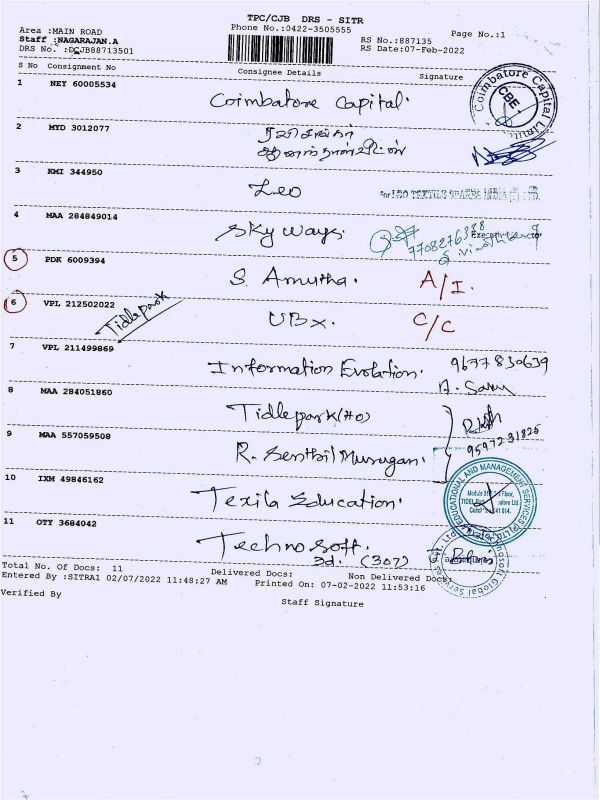 TPC/CJB DRS - SITR
Area :MAIN ROAD
Phone No.:0422-3505555
Page No.:1
Staff :NAGARAJAN.A
RS No.:887135
DRS No. :DCJB88713501
RS Date:07-Feb-2022
S No Consignment No Consignee Details Signature
1 NEY 60005534
Coimbatore Capital.
Coimbatore Capital Limited
CBE.
2 MYD 3012077
3 KMI 344950
Leo
For LEO TEXTILE SPARES INDIA (P)
4 MAA 284849014
Sky Ways.
7708276388
5 PDK 6009394
S. Amutha. A/I.
6 VPL 212502022
UBx. C/C
Tidlepark
7 VPL 211499869
Information Evolation. 9677830639
8 MAA 284051860
Tidlepark(HO)
9 MAA 557059508
R. Senthil Murugan. 9597231825
10 IXM 49846162
Texila Education.
EDUCATIONAL AND MANAGEMENT SERVICES (P) LTD
11 OTY 3684042
Technosoft.
3d. (307)
Total No. Of Docs: 11 Delivered Docs: Non Delivered Docs:
Entered By :SITRA1 02/07/2022 11:48:27 AM Printed On: 07-02-2022 11:53:16
Verified By
Staff Signature